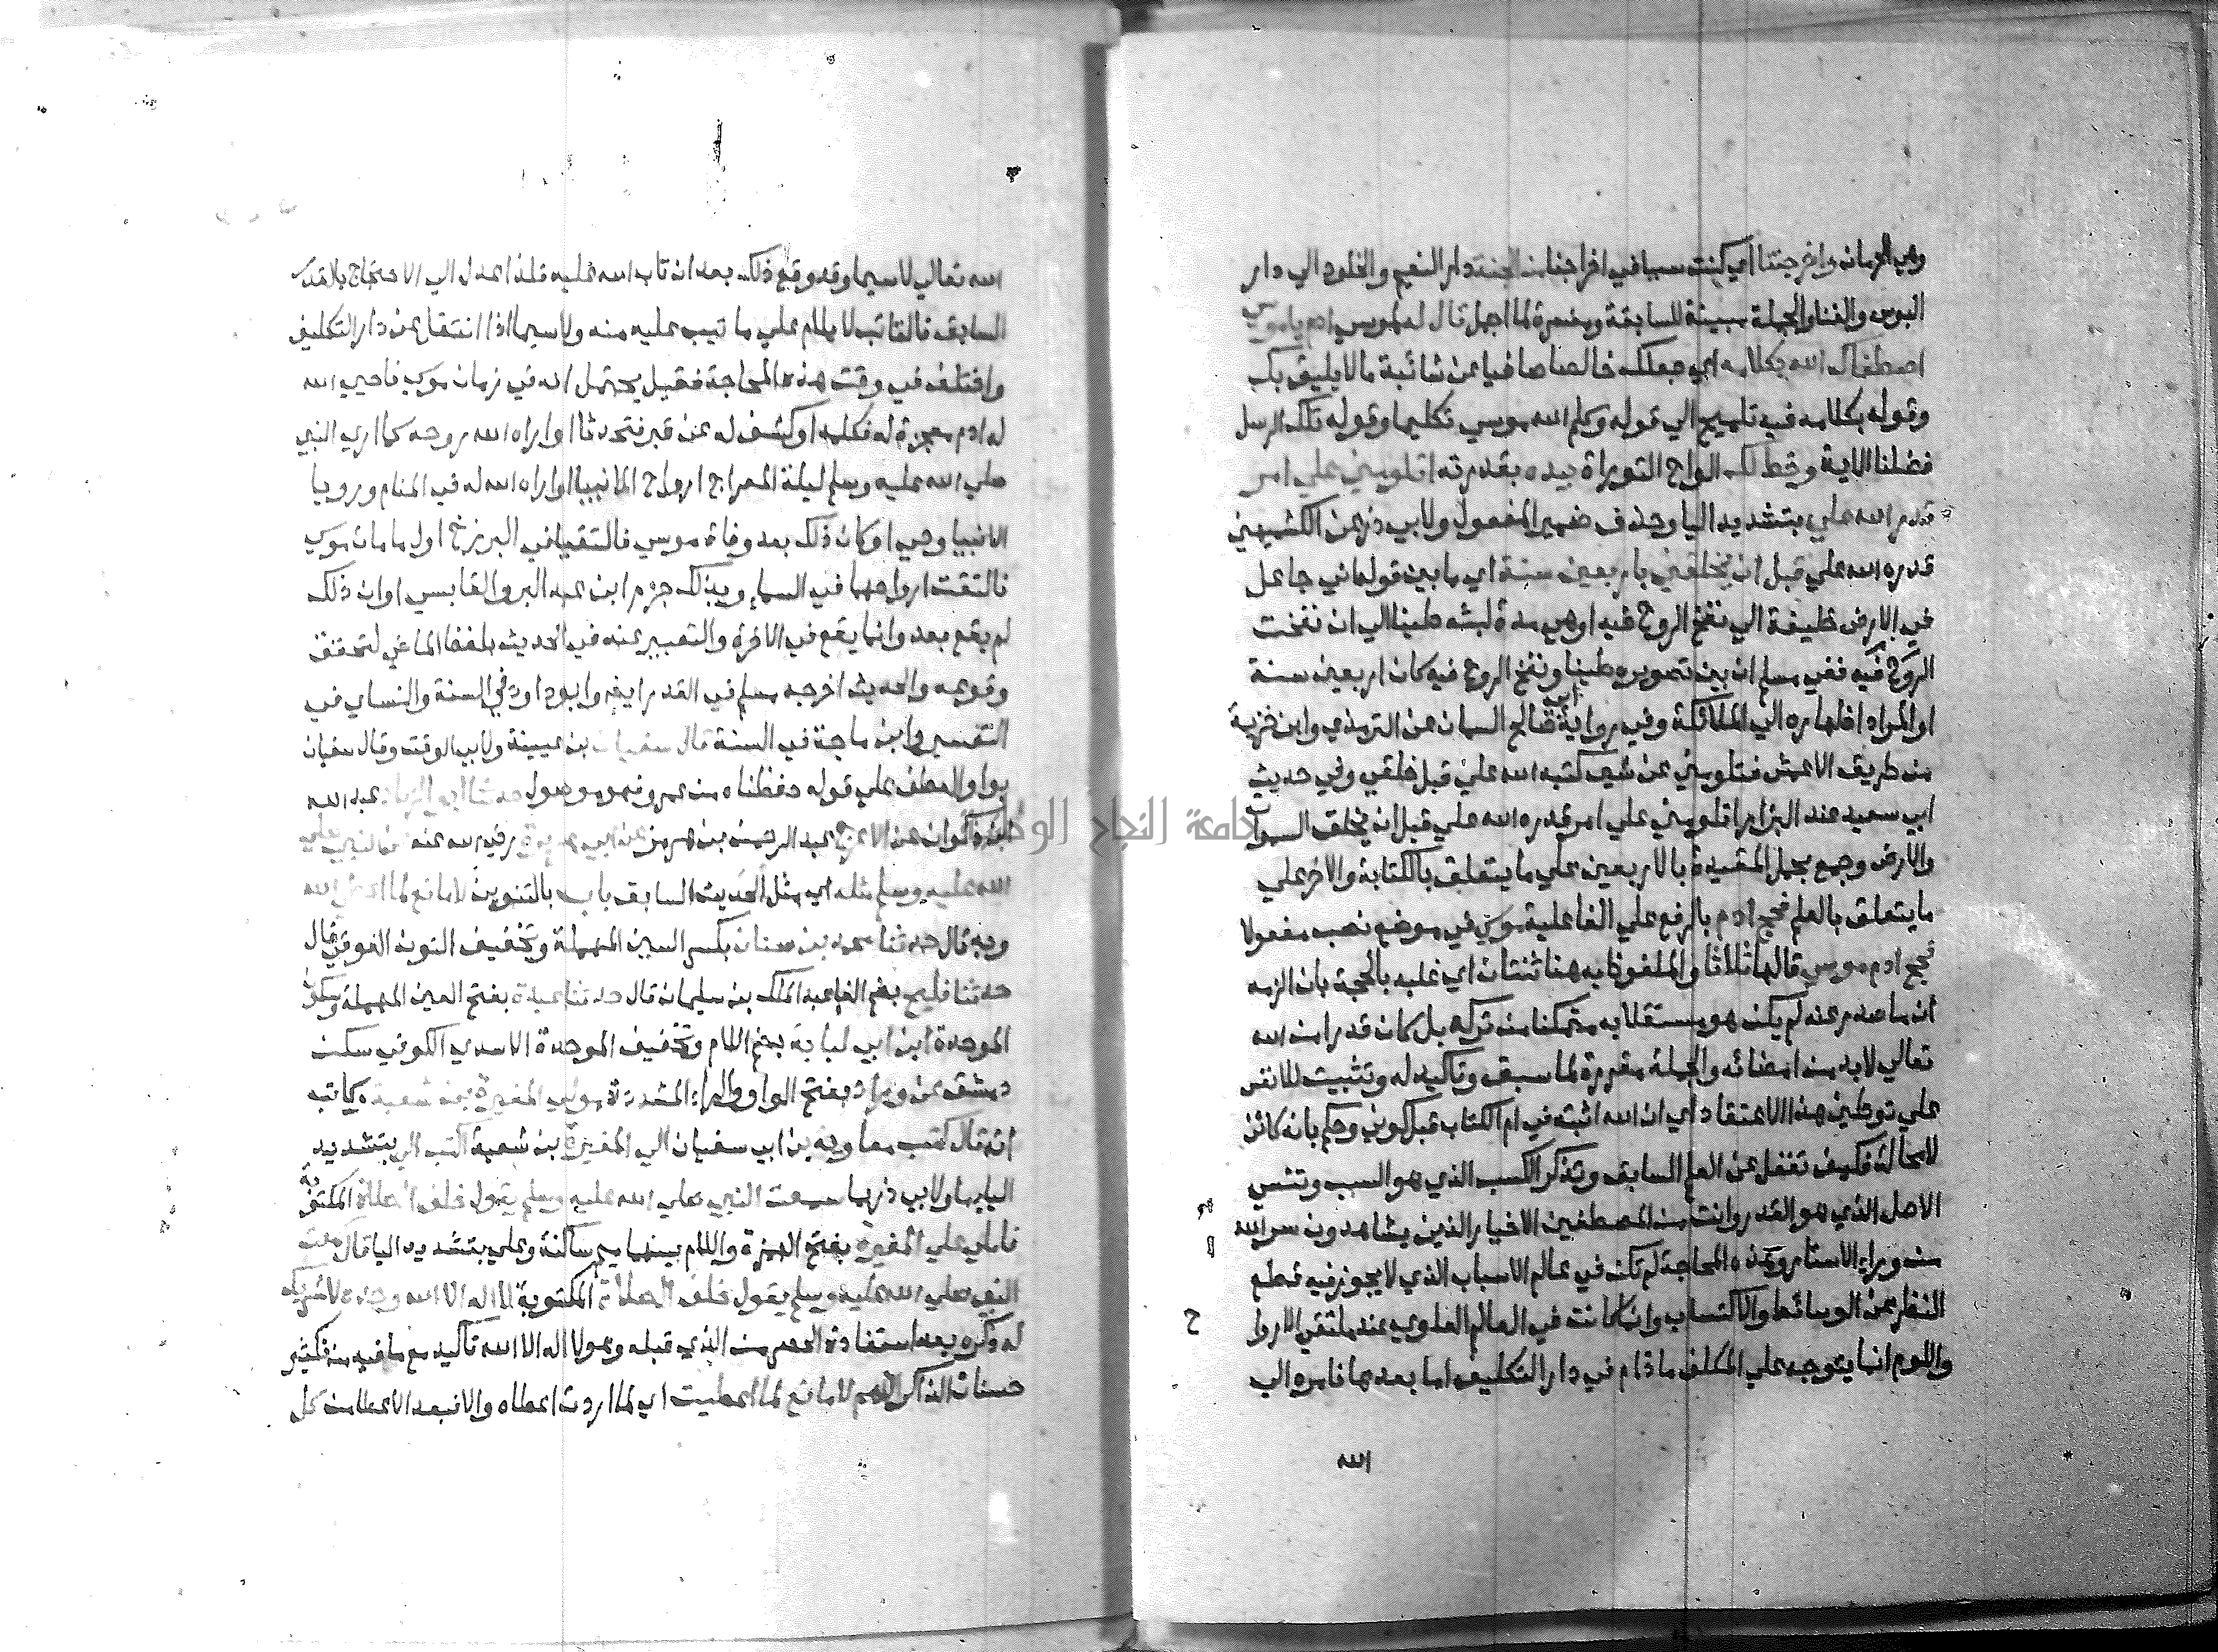 وهي الحرمان واخرجتنا اي كنت سببا في اخراجنا من الجنة دار النعيم والخلود الي دار
البوس والفنا والجملة مبينة للسابقة ومفسرة لما اجمل قال له لموسي ادم يا موسي
اصطفاك الله بكلامه اي جعلك خالصا صافيا عن شائبة ما لا يليق بك
وقوله بكلامه فيه تلميح الي قوله وكلم الله موسي تكليما وقوله تلك الرسل
فضلنا الاية وخط لك الواح التوراة بيده بقدرته اتلومني علي امر
قدر الله علي بتشديد اليا وحذف ضمير المفعول ولابي ذر عن الكشميهني
قدره الله علي قبل ان يخلقني باربعين سنة اي ما بين قوله اني جاعل
في الارض خليفة الي نفخ الروح فيه او هي مدة لبثه طينا الي ان نفخت
الروح فيه ففي مسلم ان بين تصويره طينا ونفخ الروح فيه كان اربعين سنة
او المراد اظهاره الي الملائكة وفي رواية ابي صالح السمان عن الترمذي وابن خزيمة
من طريق الاعمش فتلومني عن شي كتبه الله علي قبل خلقي وفي حديث
ابي سعيد عند البزار اتلومني علي امر قدره الله علي قبل ان يخلق السموات
والارض وجمع بحمل المقيدة بالاربعين علي ما يتعلق بالكتابة والاخر علي
ما يتعلق بالعلم فحج ادم بالرفع علي الفاعلية موسي في موضع نصب مفعولا
فحج ادم موسي قالها ثلاثا والملفوظ به هنا ثنتان اي غلبه بالحجة بان الزمه
ان ما صدر عنه لم يكن هو مستقلا به متمكنا من تركه بل كان قدرا من الله
تعالي لا بد من امضائه والجملة مقررة لما سبق وتاكيد له وتثبيت للانفس
علي توطين هذا الاعتقاد اي ان الله اثبته في ام الكتاب قبل كوني وحكم بانه كائن
لا محالة فكيف تغفل عن العلم السابق وتذكر الكسب الذي هو السبب وتنسي
الاصل الذي هو القدر وانت من المصطفين الاخيار الذين يشاهدون سر الله
من وراء الاستار وهذه المحاجة لم تكن في عالم الاسباب الذي لا يجوز فيه قطع
النظر عن الوسائط والاكتساب وانما كانت في العالم العلوي عند ملتقي الاروا
ح
واللوم انما يتوجه علي المكلف ما دام في دار التكليف اما بعدها فامره الي
الله
الله تعالي لا سيما وقد وقع ذلك بعد ان تاب الله عليه فلذا عدل الي الاحتجاج بالقدر
السابق فالتائب لا يلام علي ما تيب عليه منه ولا سيما اذا انتقل عن دار التكليف
واختلف في وقت هذه المحاجة فقيل يحتمل انه في زمان موسي فاحيي الله
له ادم معجزة له فكلمه او كشف له عن قبره فتحدثا او اراه الله روحه كما اري النبي
صلي الله عليه وسلم ليلة المعراج ارواح الانبيا او اراه الله له في المنام ورويا
الانبيا وحي او كان ذلك بعد وفاة موسي فالتقيا في البرزخ اول ما مات موسي
فالتقت ارواحهما في السماء وبذلك جزم ابن عبد البر والقابسي او ان ذلك
لم يقع بعد وانما يقع في الاخرة والتعبير عنه في الحديث بلفظ الماضي لتحقق
وقوعه والحديث اخرجه مسلم في القدر ايضا وابو داود في السنة والنساي في
التفسير وابن ماجة في السنة قال سفيان بن عيينة ولابي الوقت وقال سفيان
بواو العطف علي قوله حفظناه من عمرو فهو موصول حدثنا ابو الزناد عبد الله
ابن ذكوان عن الاعرج عبد الرحمن بن هرمز عن ابي هريرة رضي الله عنه عن النبي صلي
الله عليه وسلم مثله اي مثل الحديث السابق باب بالتنوين لا مانع لما اعطي الله
وبه قال حدثنا محمد بن سنان بكسر السين المهملة وتخفيف النون العوقي قال
حدثنا فليح بضم الفا عبد الملك بن سليمان قال حدثنا عبدة بفتح العين المهملة وسكون
الموحدة ابن ابي لبابة بضم اللام وتخفيف الموحدة الاسدي الكوفي سكن
دمشق عن وراد بفتح الواو والراء المشددة مولي المغيرة بن شعبة وكاتبه
انه قال كتب معاوية بن ابي سفيان الي المغيرة بن شعبة اكتب الي بتشديد
اليا ما ولابي ذر بما سمعت النبي صلي الله عليه وسلم يقول خلف الصلاة المكتوبة
فاملي علي المغيرة بفتح الهمزة واللام بينهما ميم ساكنة وعلي بتشديد اليا قال سمعت
النبي صلي الله عليه وسلم يقول خلف الصلاة المكتوبة لا اله الا الله وحده لا شريك
له ذكره بعد استفادة الحصر من الذي قبله وهو لا اله الا الله تاكيد مع ما فيه من تكثير
حسنات الذاكر اللهم لا مانع لما اعطيت اي لما اردت اعطاه والا فبعد الاعطا من كل
جامعة النجاح الوطنية